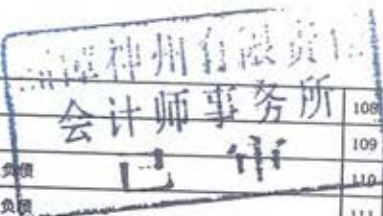 神州有限责任
会计师事务所
已审
108
109
负债 110
负债 111